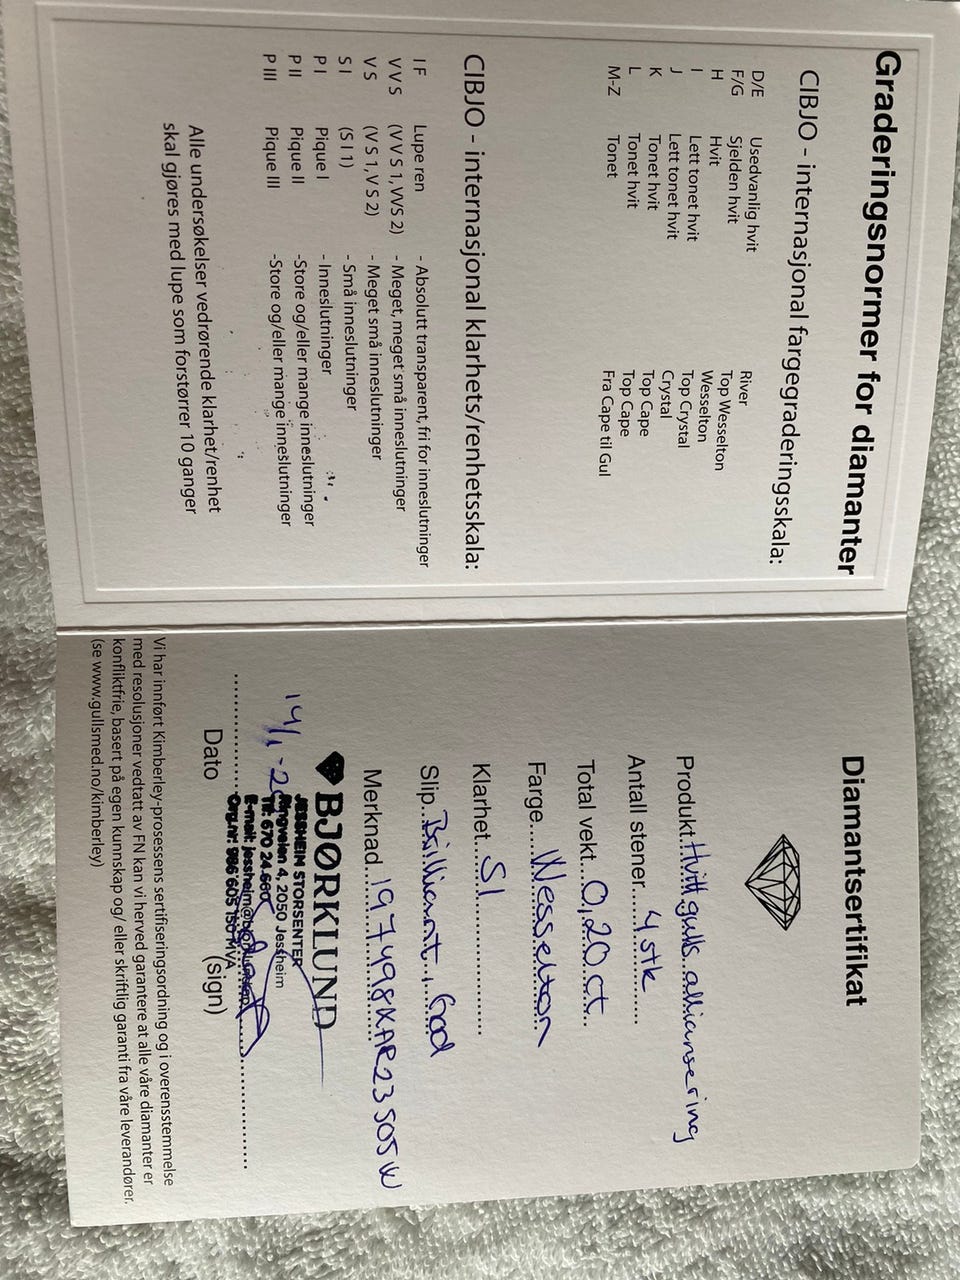 Graderingsnormer for diamanter
CIBJO - internasjonal fargegraderingsskala:
D/E Usedvanlig hvit River
F/G Sjelden hvit Top Wesselton
H Hvit Wesselton
I Lett tonet hvit Top Crystal
J Lett tonet hvit Crystal
K Tonet hvit Top Cape
L Tonet hvit Top Cape
M-Z Tonet Fra Cape til Gul
CIBJO - internasjonal klarhets/renhetsskala:
I F Lupe ren - Absolutt transparent, fri for inneslutninger
V V S (V V S 1, VVS 2) - Meget, meget små inneslutninger
V S (V S 1, V S 2) - Meget små inneslutninger
S I (S I 1) - Små inneslutninger
P I Pique I - Inneslutninger
P II Pique II -Store og/eller mange inneslutninger
P III Pique III -Store og/eller mange inneslutninger
Alle undersøkelser vedrørende klarhet/renhet
skal gjøres med lupe som forstørrer 10 ganger
Diamantsertifikat
Produkt Hvitt gulls alliansering
Antall stener 4 stk
Total vekt 0,20 ct
Farge Wesselton
Klarhet SI
Slip Brilliant, Good
Merknad 197498KAR23505W
BJØRKLUND
JESSHEIM STORSENTER
Ringveien 4, 2050 Jessheim
Tlf: 670 24 660
E-mail:
Org.nr: 986 605 156 MVA
14/1
Dato (sign)
Vi har innført Kimberley-prosessens sertifiseringsordning og i overensstemmelse
med resolusjoner vedtatt av FN kan vi herved garantere at alle våre diamanter er
konfliktfrie, basert på egen kunnskap og/ eller skriftlig garanti fra våre leverandører.
(se www.gullsmed.no/kimberley)